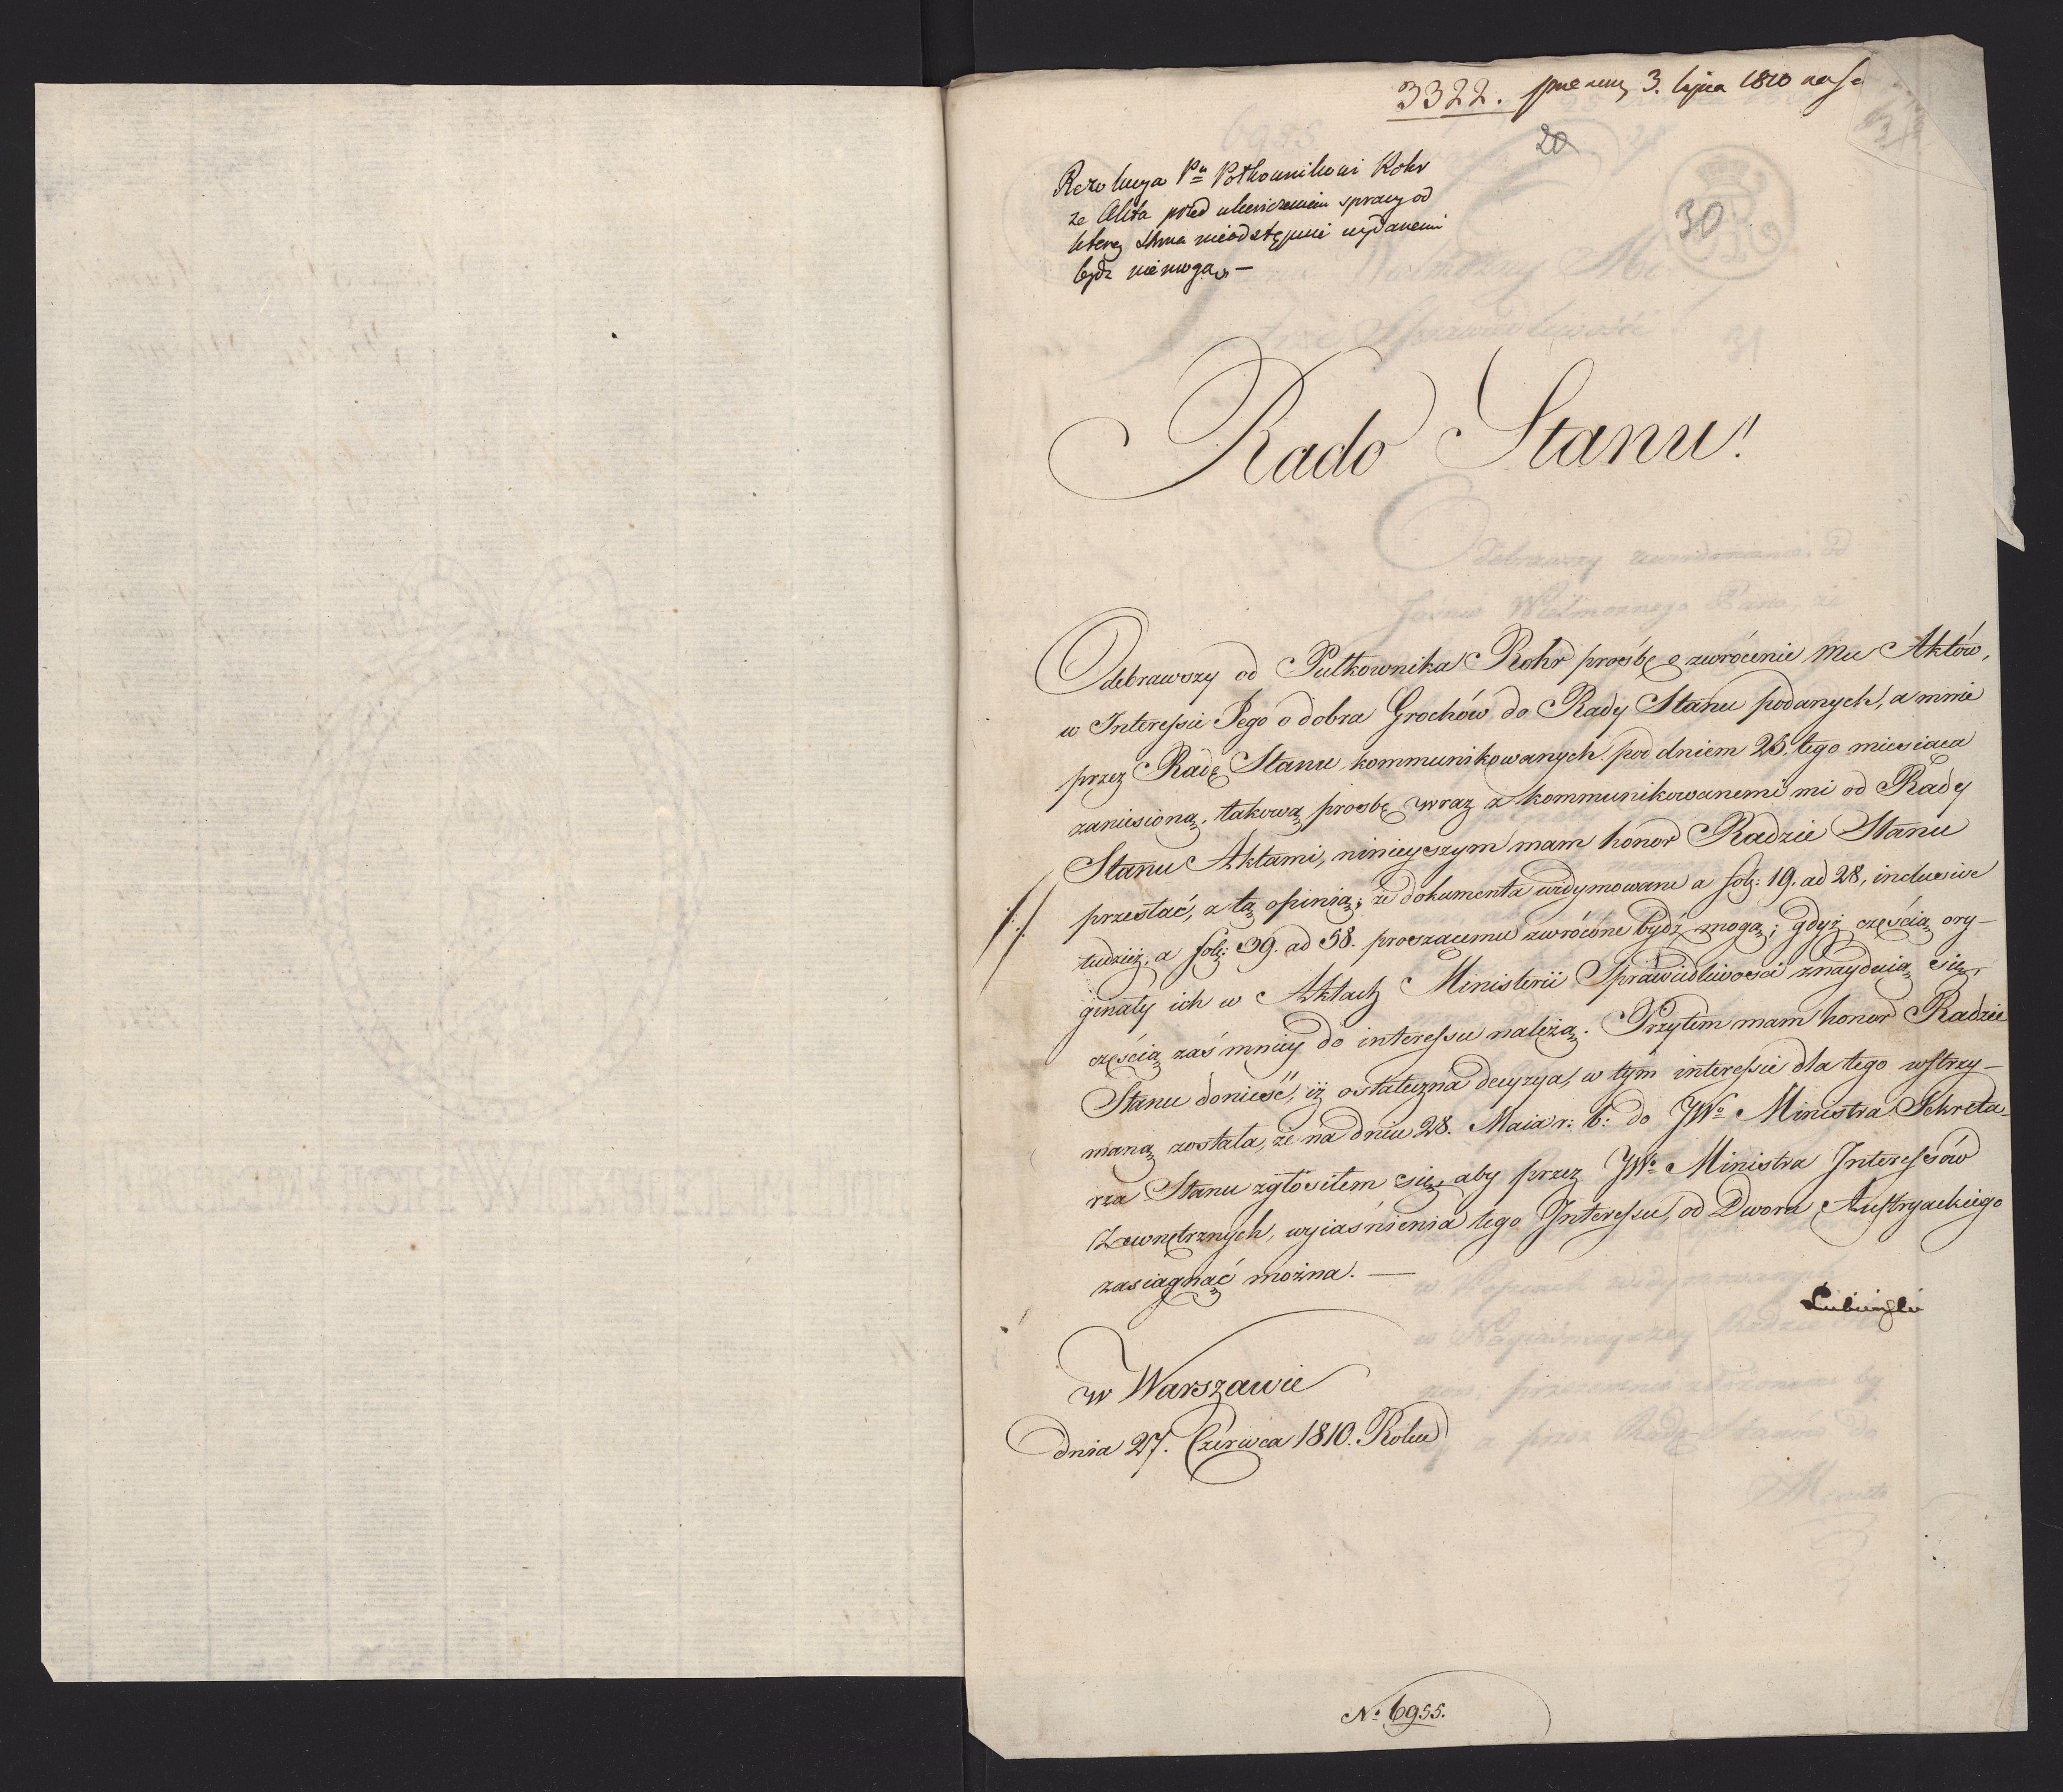 3322. 3. lipca 1810
20
30
Rezolucya Pu Połkownikowi Rohr
że Akta przed ukończeniem sprawy od
którey Strona nieodstępuie wydanemi
bydź niemogą. —
Rado Stanu!
Odebrawszy od Pułkownika Rohr prośbę o zwrócenie Mu Aktów,
w Interessie Jego o dobra Grochów do Rady Stanu podanych, a mnie
przez Radę Stanu kommunikowanych pod dniem 26. tego miesiąca
zaniesioną, takową prośbę wraz z kommunikowanemi mi od Rady
Stanu Aktami, ninieyszym mam honor Radzie Stanu
przesłać, z tą opinią; że dokumenta widymowane a fol: 19. ad 28, inclusive
tudzież, a fol: 39. ad 58. proszącemu zwrócone bydź mogą; gdyż częścią ory-
ginały ich w Aktach Ministerii Sprawiedliwości znayduią się,
częścią zaś mniey do interessu należą. Przytem mam honor Radzie
Stanu donieść, iż ostateczna decyzya, w tym interessie dla tego wstrzy-
maną została, że na dniu 28. Maia r: b: do JWo Ministra Sekreta-
rza Stanu zgłosiłem się, aby przez JWo Ministra Interessów
Zewnętrznych, wyiaśnienia tego Interessu, od Dworu Austryackiego
zasiągnąć można. —
Lubieński
w Warszawie
dnia 27. Czerwca 1810. Roku
No 6955.